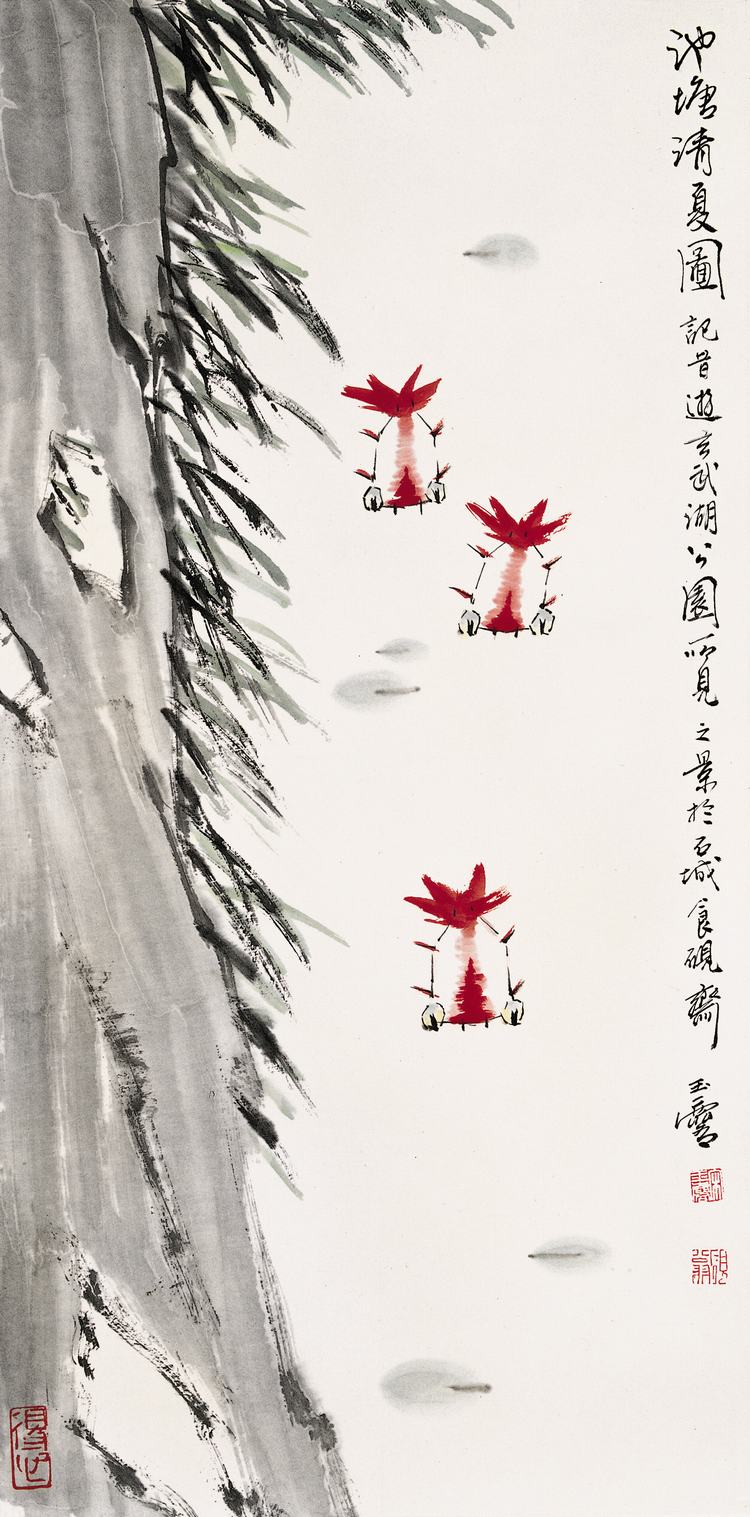 池塘清夏圖
記昔遊玄武湖公園所見之景於石城食硯齋
玉霽
得心